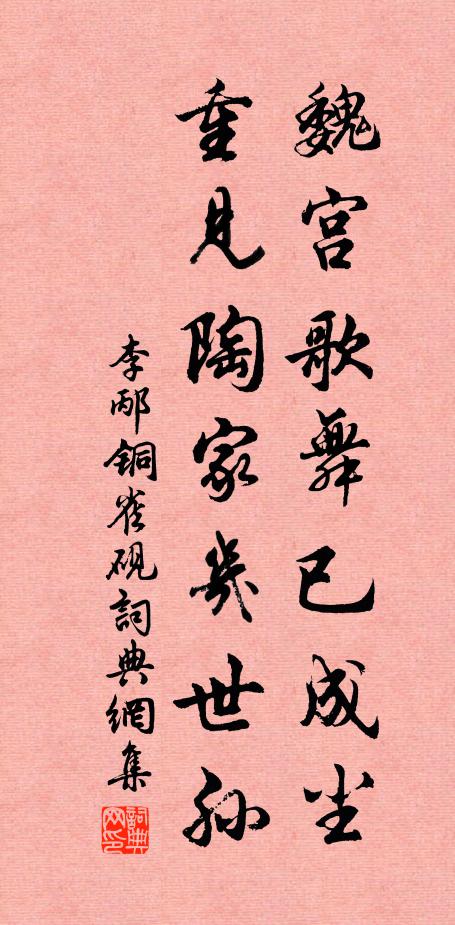 魏宫歌舞已成尘
重见陶家几世孙
李邴铜雀砚詞典網集
詞典网印